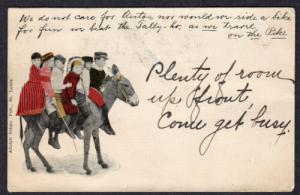 We do not care for Autos nor would we ride a bike
for fun we blot the Tally-ho, as we travel
on the Pike
Plenty of room
up ffront.
Come get busy.
Adolph Selige Pub. St. Louis